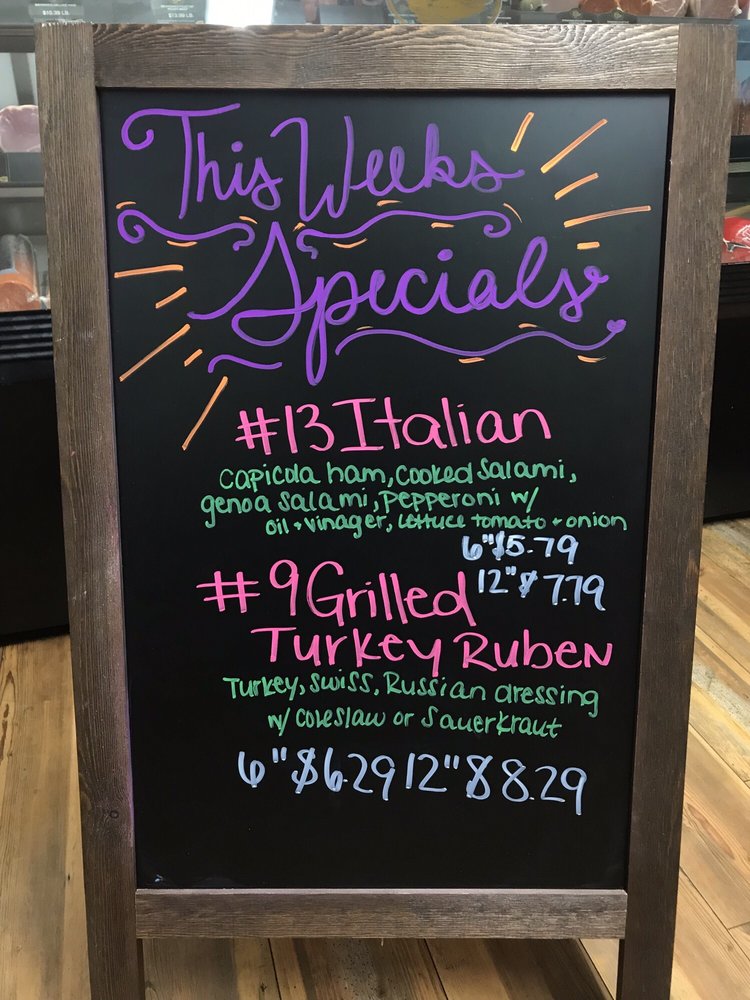 $10.99 LB
$13.99 LB
This Weeks
Specials
#13 Italian
capicola ham, cooked salami,
genoa salami, pepperoni w/
oil + vinager, lettuce tomato + onion
6" $5.79
12" $7.79
#9 Grilled
Turkey Ruben
Turkey, swiss, Russian dressing
w/ coleslaw or sauerkraut
6" $6.29 12" $8.29